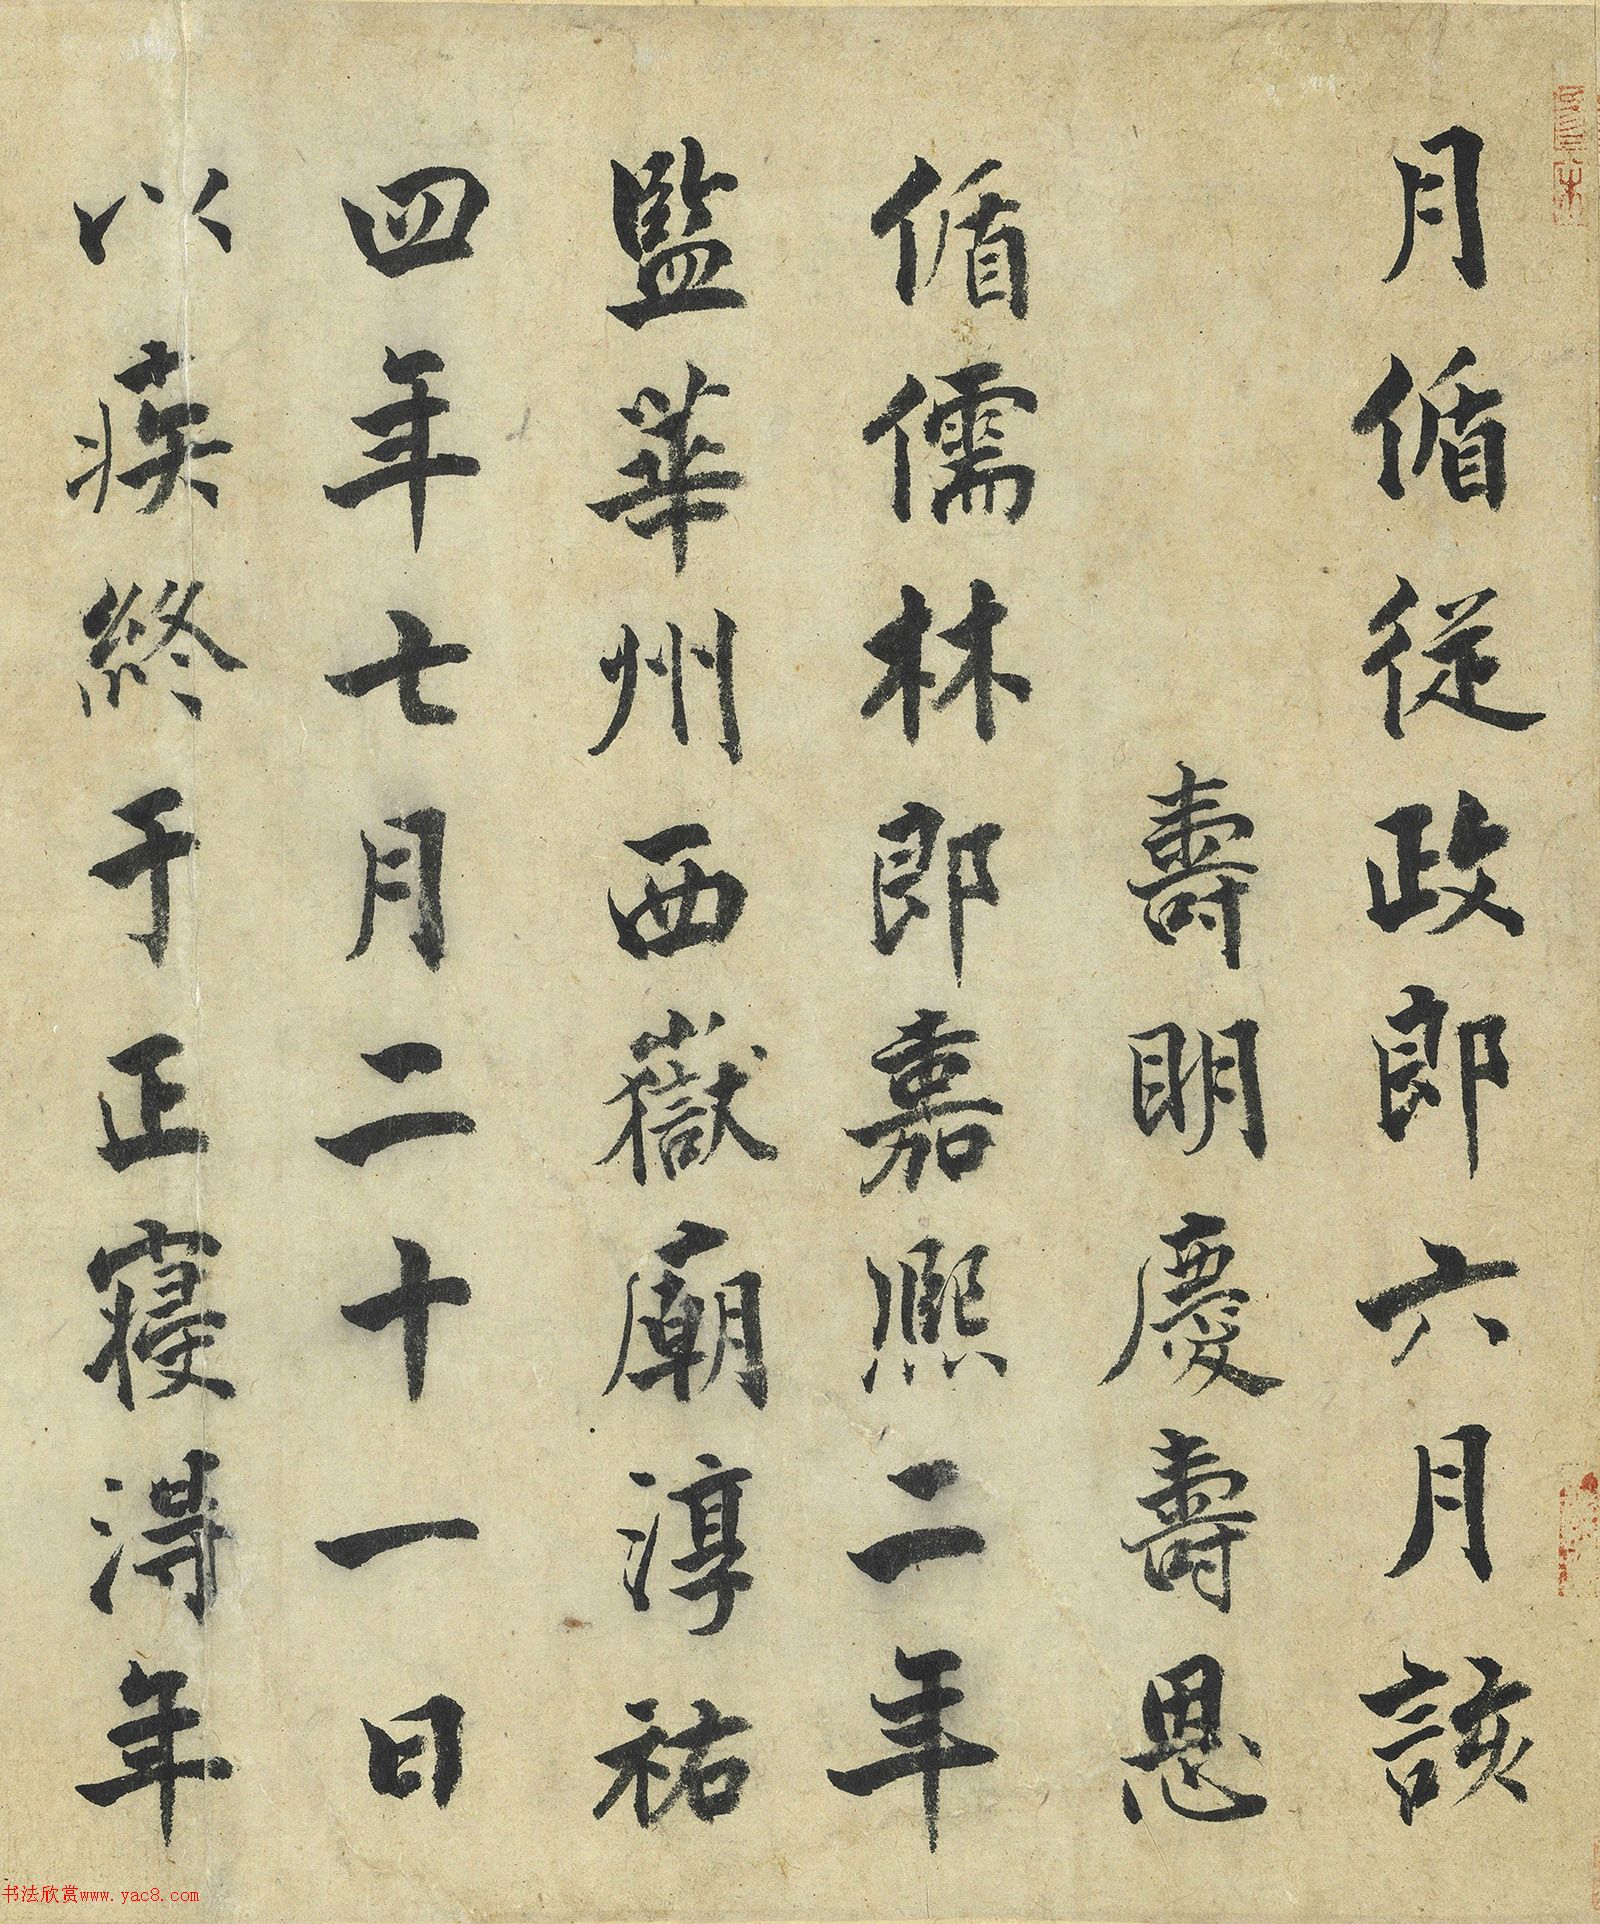 月循從政郎六月該
壽明慶壽恩
循儒林郎嘉熈二年
監華州西嶽廟淳祐
四年七月二十一日
以疾終于正寢淂年
书法欣赏www.yac8.com